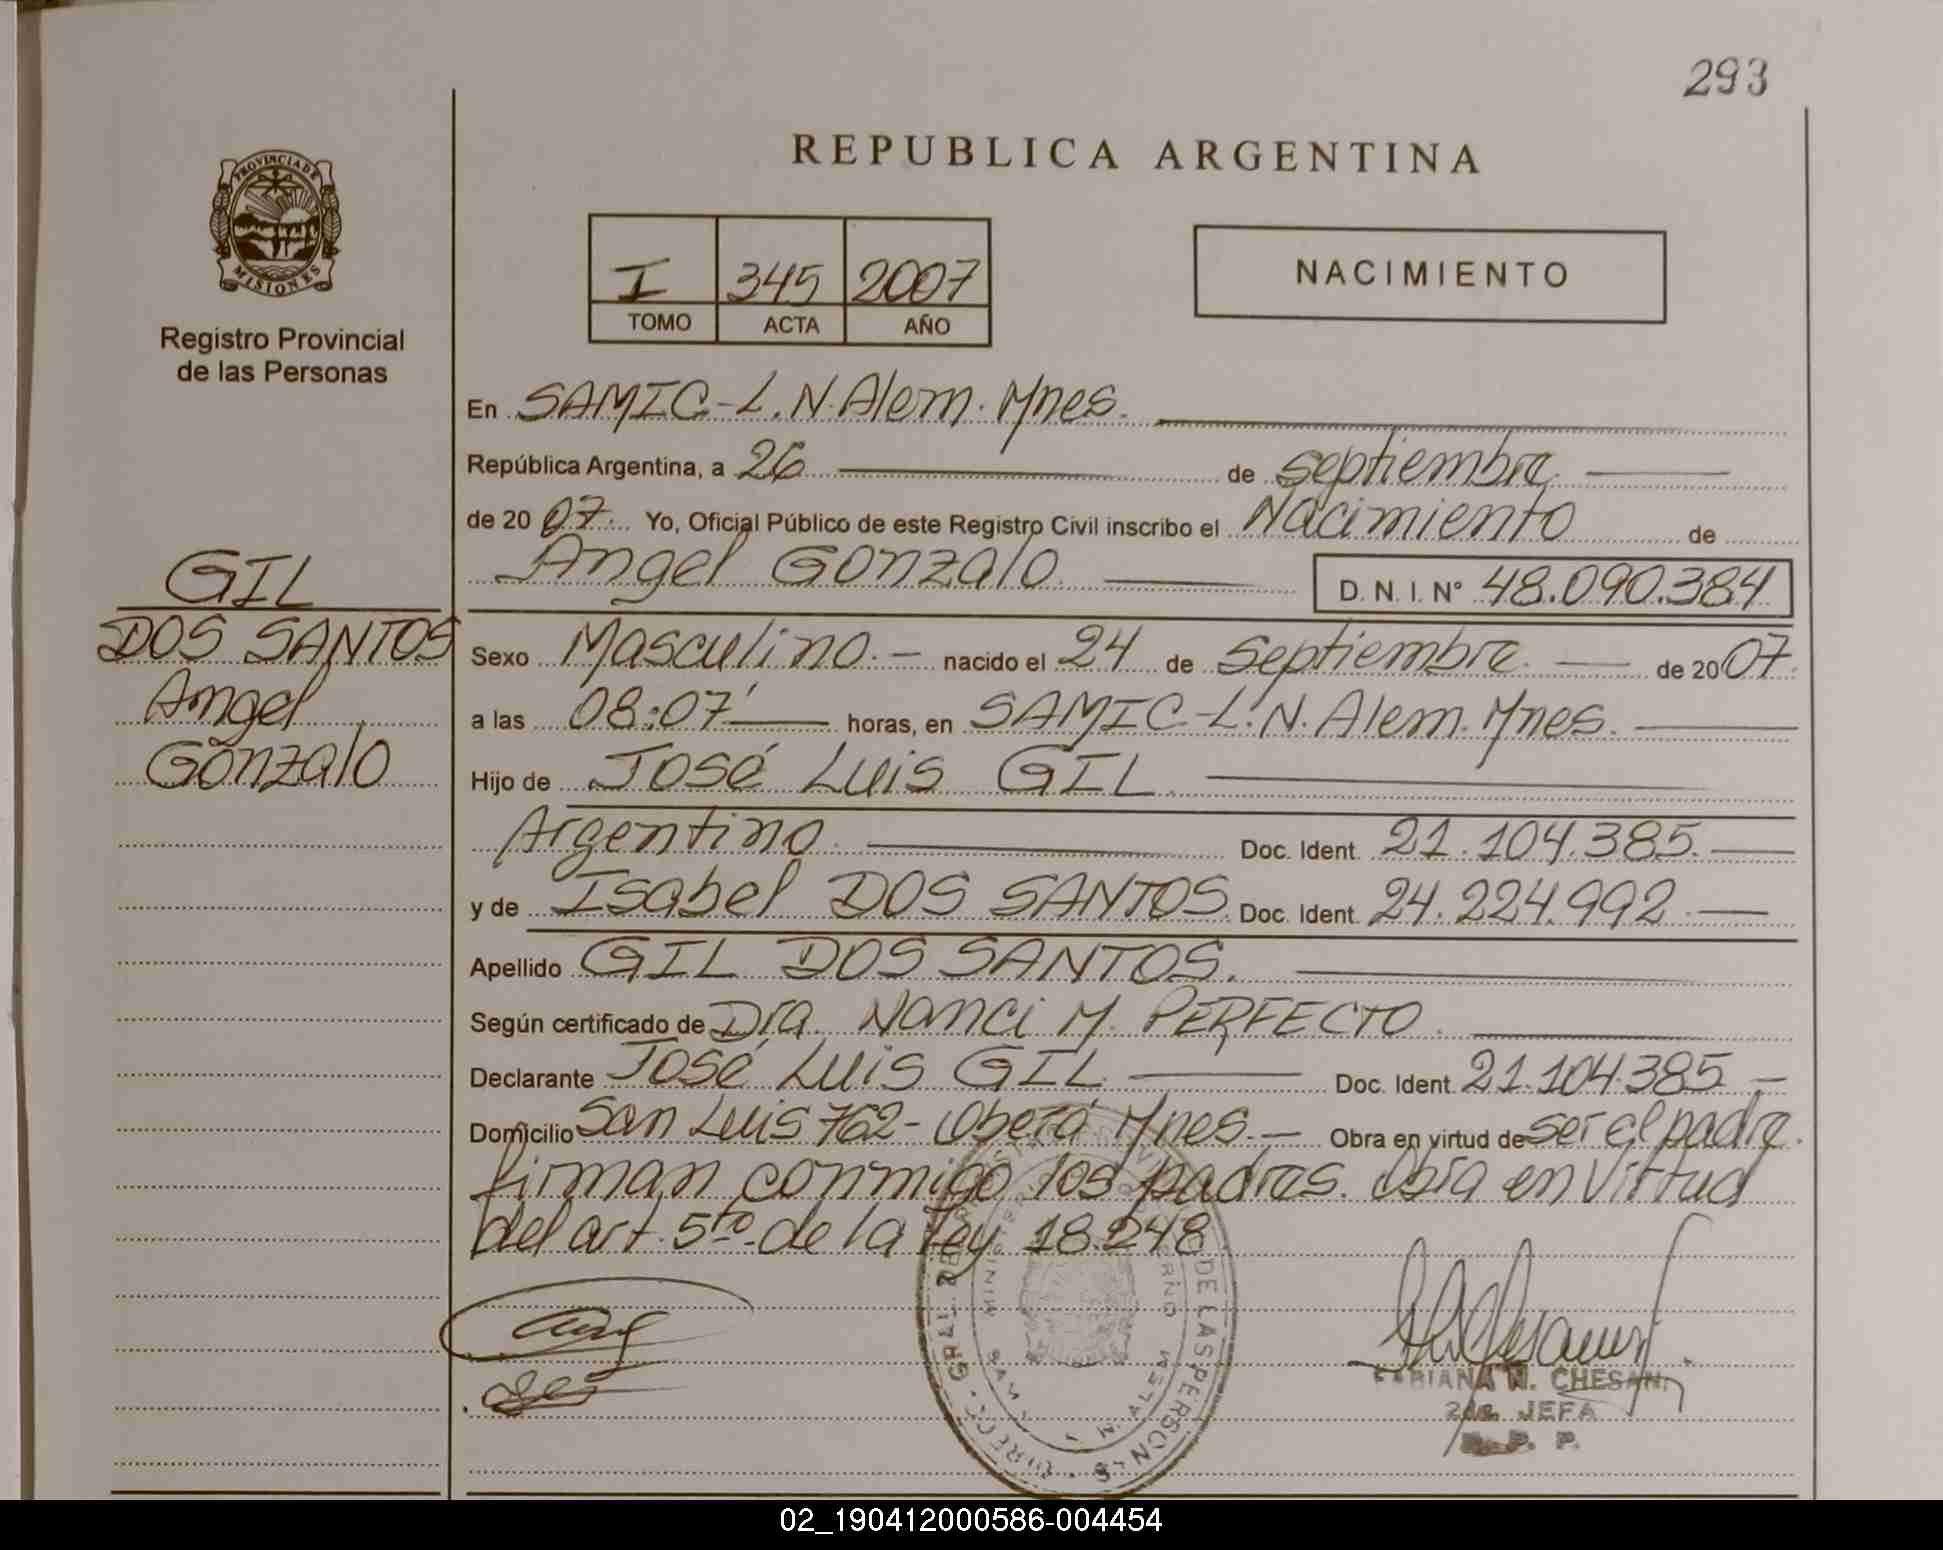 293
PROVINCIA DE
MISIONES
Registro Provincial
de las Personas
REPUBLICA ARGENTINA
I 345 2007
TOMO ACTA AÑO
NACIMIENTO
En SAMIC-L.N.Alem. Mnes.
República Argentina, a 26 de septiembre
de 2007. Yo, Oficial Público de este Registro Civil inscribo el Nacimiento de
Angel Gonzalo D. N. I. N° 48.090.384
GIL
DOS SANTOS
Angel
Gonzalo
Sexo Masculino.- nacido el 24 de Septiembre. de 2007.
a las 08:07' horas, en SAMIC-L.N.Alem. Mnes.
Hijo de José Luis GIL.
Argentino. Doc. Ident. 21.104.385.
y de Isabel DOS SANTOS. Doc. Ident. 24.224.992.
Apellido GIL DOS SANTOS.
Según certificado de Dra. Nanci M. PERFECTO.
Declarante José Luis GIL Doc. Ident. 21.104.385
Domicilio San Luis 762- Oberá Mnes.- Obra en virtud de ser el padre.
firman conmigo los padres. Obra en virtud
del art. 5to. de la ley 18.248
FABIANA N. CHESANI
2da. JEFA
R. P. P.
02_190412000586-004454